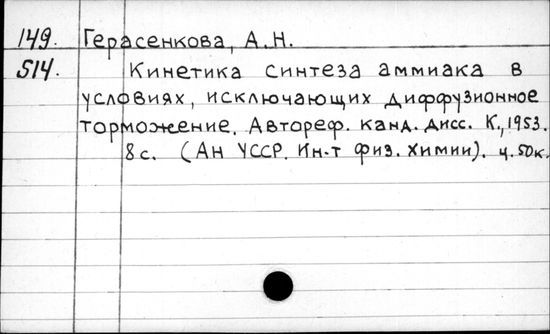 149. Герасенкова, А.Н.
514. Кинетика синтеза аммиака в
условиях, исключающих диффузионное
торможение. Автореф. канд. дисс. К., 1953.
8с. (Ан УССР. Ин-т физ. химии). ц. 50к.